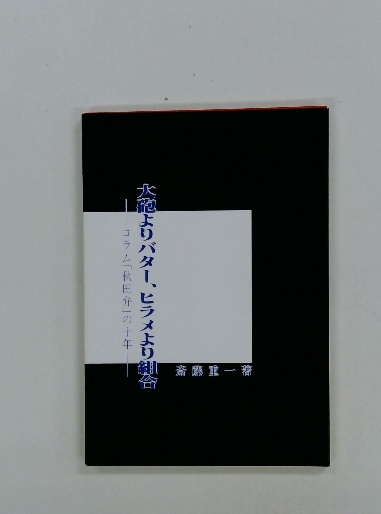 大砲よりバター、ヒラメより組合
――コラム「秋田弁」の十年――
斎藤重一著